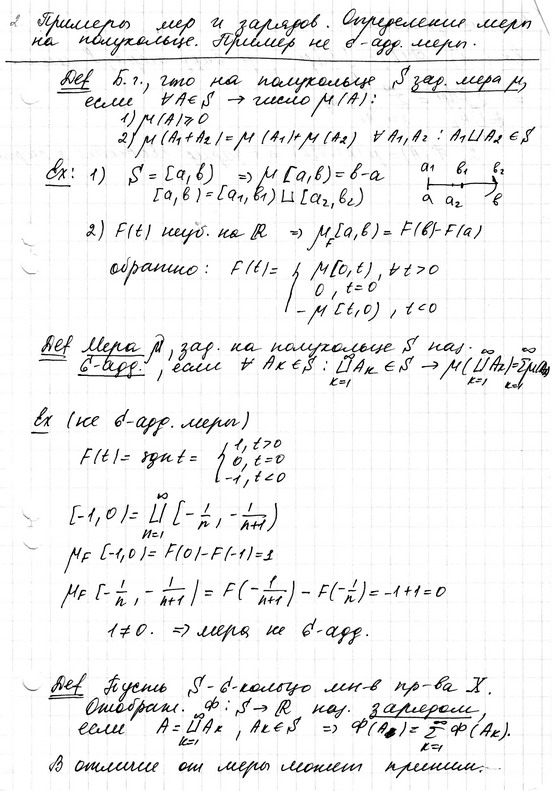 2 Примеры мер и зарядов. Определение меры
на полукольце. Пример не б-адд. меры.
Def Б.г., что на полукольце S зад. мера μ,
если ∀A∈S → число μ(A):
1) μ(A)⩾0
2) μ(A₁+A₂)=μ(A₁)+μ(A₂) ∀A₁,A₂: A₁⊔A₂∈S
Ex: 1) S=[a,b) ⇒ μ[a,b)=b-a
a₁ b₁ b₂
a a₂ b
[a,b)=[a₁,b₁)⊔[a₂,b₂)
2) F(t) неуб. на ℝ ⇒ μ_F[a,b)=F(b)-F(a)
обратно: F(t)= { μ[0,t), ∀t>0
0, t=0
-μ[t,0), t<0
Def Мера μ, зад. на полукольце S наз.
б-адд., если ∀Aₖ∈S: ⊔_{k=1}^∞ Aₖ∈S → μ(⊔_{k=1}^∞ A₂)=Σ_{k=1}^∞ μ(Aₖ)
Ex (не б-адд. меры)
F(t)=sgn t= { 1, t>0
0, t=0
-1, t<0
[-1,0)=⊔_{n=1}^∞ [-1/n, -1/(n+1))
μ_F[-1,0)=F(0)-F(-1)=1
μ_F[-1/n, -1/(n+1))=F(-1/(n+1))-F(-1/n)=-1+1=0
1≠0. ⇒ мера не б-адд.
Def Пусть S-б-кольцо мн-в пр-ва X.
Отображ. Ф: S→ℝ наз. зарядом,
если A=⊔_{k=1}^∞ Aₖ, Aₖ∈S ⇒ Ф(A)=Σ_{k=1}^∞ Ф(Aₖ).
В отличие от меры может приним.